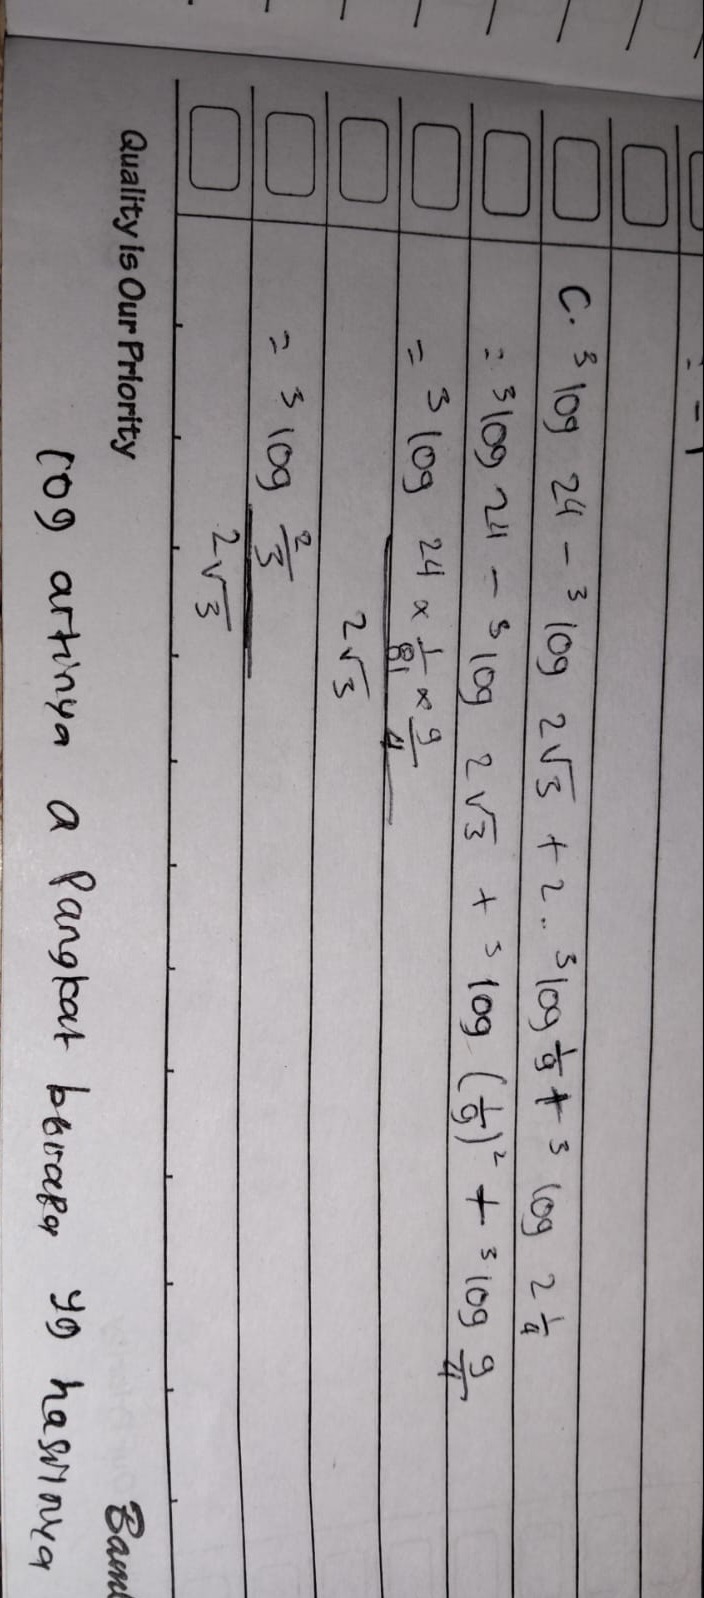 = -1
C. ³log 24 - ³log 2√3 + 2. ³log 1/9 + ³log 2 1/4
= ³log 24 - ³log 2√3 + ³log (1/9)² + ³log 9/4
= ³log 24 × 1/81 × 9/4
2√3
= ³log 2/3
2√3
Quality is Our Priority
log artinya a Pangkat berapa yg hasilnya